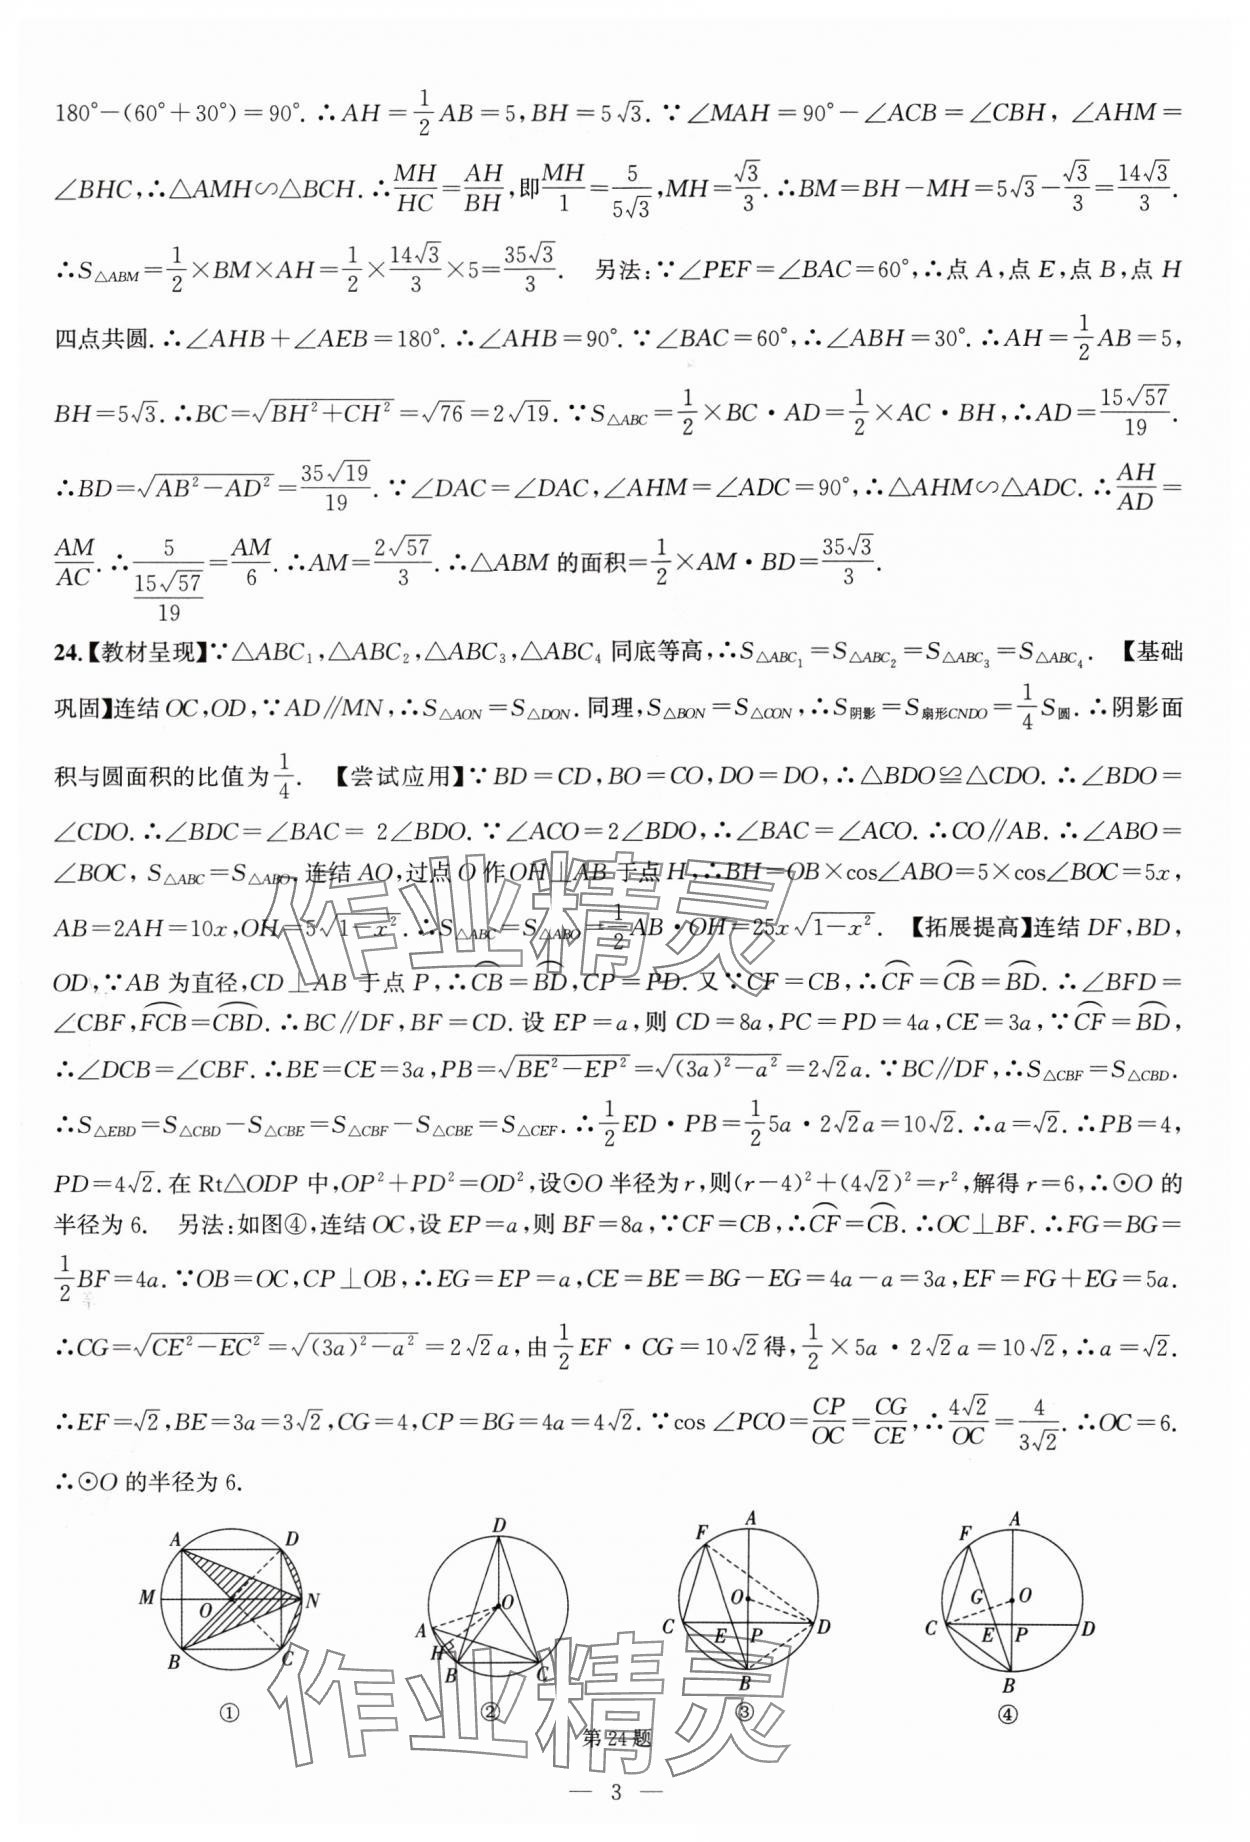 180°−(60°+30°)=90°.∴AH=1/2AB=5,BH=5√3.∵∠MAH=90°−∠ACB=∠CBH,∠AHM=
∠BHC,∴△AMH∽△BCH.∴MH/HC=AH/BH,即MH/1=5/(5√3),MH=√3/3.∴BM=BH−MH=5√3−√3/3=14√3/3.
∴S△ABM=1/2×BM×AH=1/2×14√3/3×5=35√3/3. 另法:∵∠PEF=∠BAC=60°,∴点A,点E,点B,点H
四点共圆.∴∠AHB+∠AEB=180°.∴∠AHB=90°.∵∠BAC=60°,∴∠ABH=30°.∴AH=1/2AB=5,
BH=5√3.∴BC=√(BH²+CH²)=√76=2√19.∵S△ABC=1/2×BC·AD=1/2×AC·BH,∴AD=15√57/19.
∴BD=√(AB²−AD²)=35√19/19.∵∠DAC=∠DAC,∠AHM=∠ADC=90°,∴△AHM∽△ADC.∴AH/AD=
AM/AC.∴5/(15√57/19)=AM/6.∴AM=2√57/3.∴△ABM的面积=1/2×AM·BD=35√3/3.
24.【教材呈现】∵△ABC₁,△ABC₂,△ABC₃,△ABC₄同底等高,∴S△ABC₁=S△ABC₂=S△ABC₃=S△ABC₄. 【基础
巩固】连结OC,OD,∵AD∥MN,∴S△AON=S△DON.同理,S△BON=S△CON,∴S阴影=S扇形CNDO=1/4S圆.∴阴影面
积与圆面积的比值为1/4. 【尝试应用】∵BD=CD,BO=CO,DO=DO,∴△BDO≌△CDO.∴∠BDO=
∠CDO.∴∠BDC=∠BAC=2∠BDO.∵∠ACO=2∠BDO,∴∠BAC=∠ACO.∴CO∥AB.∴∠ABO=
∠BOC,S△ABC=S△ABO,连结AO,过点O作OH⊥AB于点H,∴BH=OB×cos∠ABO=5×cos∠BOC=5x,
AB=2AH=10x,OH=5√(1−x²).∴S△ABC=S△ABO=1/2AB·OH=25x√(1−x²). 【拓展提高】连结DF,BD,
OD,∵AB为直径,CD⊥AB于点P,∴⌒CB=⌒BD,CP=PD.又∵CF=CB,∴⌒CF=⌒CB=⌒BD.∴∠BFD=
∠CBF,⌒FCB=⌒CBD.∴BC∥DF,BF=CD.设EP=a,则CD=8a,PC=PD=4a,CE=3a,∵⌒CF=⌒BD,
∴∠DCB=∠CBF.∴BE=CE=3a,PB=√(BE²−EP²)=√((3a)²−a²)=2√2a.∵BC∥DF,∴S△CBF=S△CBD.
∴S△EBD=S△CBD−S△CBE=S△CBF−S△CBE=S△CEF.∴1/2ED·PB=1/2 5a·2√2a=10√2.∴a=√2.∴PB=4,
PD=4√2.在Rt△ODP中,OP²+PD²=OD²,设⊙O半径为r,则(r−4)²+(4√2)²=r²,解得r=6,∴⊙O的
半径为6. 另法:如图④,连结OC,设EP=a,则BF=8a,∵CF=CB,∴⌒CF=⌒CB.∴OC⊥BF.∴FG=BG=
1/2BF=4a.∵OB=OC,CP⊥OB,∴EG=EP=a,CE=BE=BG−EG=4a−a=3a,EF=FG+EG=5a.
∴CG=√(CE²−EC²)=√((3a)²−a²)=2√2a,由1/2EF·CG=10√2得,1/2×5a·2√2a=10√2,∴a=√2.
∴EF=√2,BE=3a=3√2,CG=4,CP=BG=4a=4√2.∵cos∠PCO=CP/OC=CG/CE,∴4√2/OC=4/(3√2).∴OC=6.
∴⊙O的半径为6.
A D M O N B C
D A O H B C
F A O C E P D B
F A G O C E P D B
① ② ③ ④
第24题
— 3 —
作业精灵
作业精灵